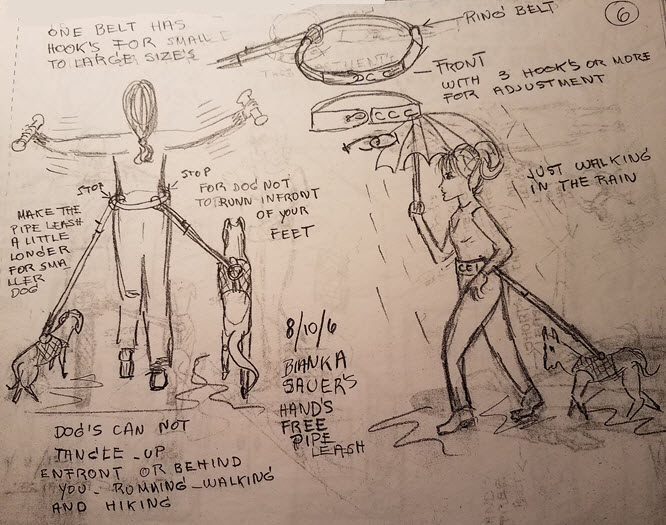 ONE BELT HAS
HOOK'S FOR SMALL
TO LARGE SIZE'S
RING BELT
6
FRONT
WITH 3 HOOK'S OR MORE
FOR ADJUSTMENT
CCC
JUST WALKING
IN THE RAIN
STOP
STOP
FOR DOG NOT
TO RUNN INFRONT
OF YOUR
FEET
MAKE THE
PIPE LEASH
A LITTLE
LONGER
FOR SMA
LLER
DOG
8/10/6
BIANKA
SAUER'S
HAND'S
FREE
PIPE
LEASH
DOG'S CAN NOT
TANGLE-UP
ENFRONT OR BEHIND
YOU - RUNNING - WALKING
AND HIKING